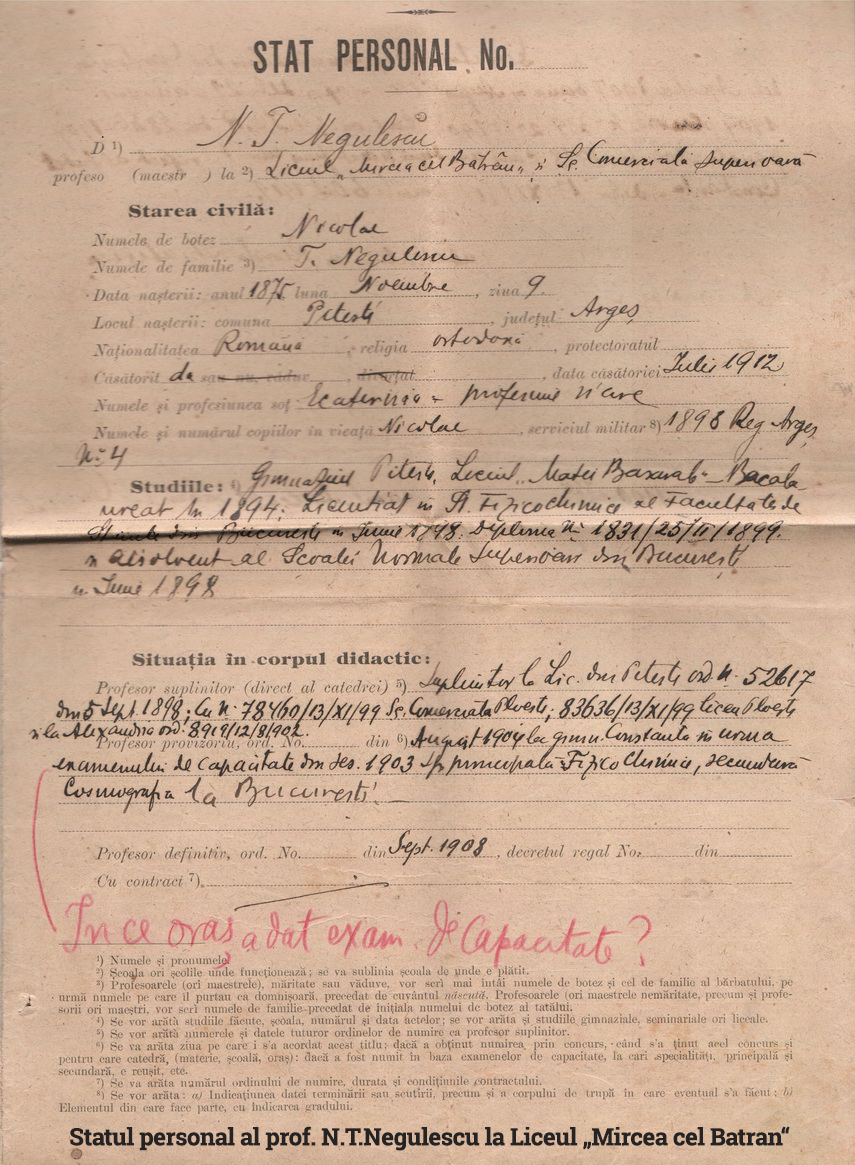 STAT PERSONAL No.
D 1) N. T. Negulescu
profeso (maestr ) la 2) Liceul „Mircea cel Bătrân„ și Sc. Comercială superioară
Starea civilă:
Numele de botez Nicolae
Numele de familie 3) T. Negulescu
Data nașterii: anul 1875 luna Noembre, ziua 9.
Locul nașterii: comuna Pitești, județul Argeș
Naționalitatea Romana, religia ortodoxă, protectoratul
Căsătorit da sau nu, văduv, divorțat, data căsătoriei Iulie 1912
Numele și profesiunea soț Ecaterina - profesiune n'are
Numele și numărul copiilor în vieață Nicolae, serviciul militar 8) 1898 Reg Argeș
No 4
Studiile: 4) Gimnaziul Pitești, Liceul „Matei Basarab" - Bacala
ureat în 1894; Licentiat in Șt. Fizicochimice al Facultatei de
Științe din București in Iunie 1898. Diploma No 1831/25/II/1899.
și absolvent al Școalei Normale Superioare din București
in Iunie 1898
Situația în corpul didactic:
Profesor suplinitor (direct al catedrei) 5) Suplinitor la Lic. din Pitești ord. N. 52617
din 5 Sept. 1898; Cu N. 78460/13/XI/99 Sc. Comerciala Ploești; 83636/13/XI/99 liceu Ploești
și la Alexandria ord. 8919/12/8/902.
Profesor provizoriu, ord. No. din 6) August 1904 la gimn. Constanta in urma
examenului de capacitate din ses. 1903 sp. principală Fizico Chimice, secundară
Cosmografia la București.
Profesor definitiv, ord. No. din Sept. 1908, decretul regal No. din
Cu contract 7)
In ce oraș a dat exam. de Capacitate?
1) Numele și pronumele.
2) Școala ori școlile unde funcționează; se va sublinia școala de unde e plătit.
3) Profesoarele (ori maestrele), măritate sau văduve, vor scri mai întâi numele de botez și cel de familie al bărbatului, pe
urmă numele pe care îl purtau ca domnișoară, precedat de cuvântul născută. Profesoarele (ori maestrele nemăritate, precum și profe-
sorii ori maeștri, vor scri numele de familie precedat de inițiala numelui de botez al tatălui.
4) Se vor arătà studiile făcute, școala, numărul și data actelor; se vor arătà și studiile gimnaziale, seminariale ori liceale.
5) Se vor arătà numerele și datele tuturor ordinelor de numire ca profesor suplinitor.
6) Se va arătà ziua pe care i s'a acordat acest titlu; dacă a obținut numirea prin concurs, când s'a ținut acel concurs și
pentru care catedră, (materie, școală, oraș); dacă a fost numit în baza examenelor de capacitate, la cari specialități, principală și
secundară, e reușit, etc.
7) Se va arătà numărul ordinului de numire, durata și condițiunile contractului.
8) Se vor arăta: a) Indicațiunea datei terminării sau scutirii, precum și a corpului de trupă în care eventual s'a făcut; b)
Elementul din care face parte, cu indicarea gradului.
Statul personal al prof. N.T.Negulescu la Liceul „Mircea cel Batran“